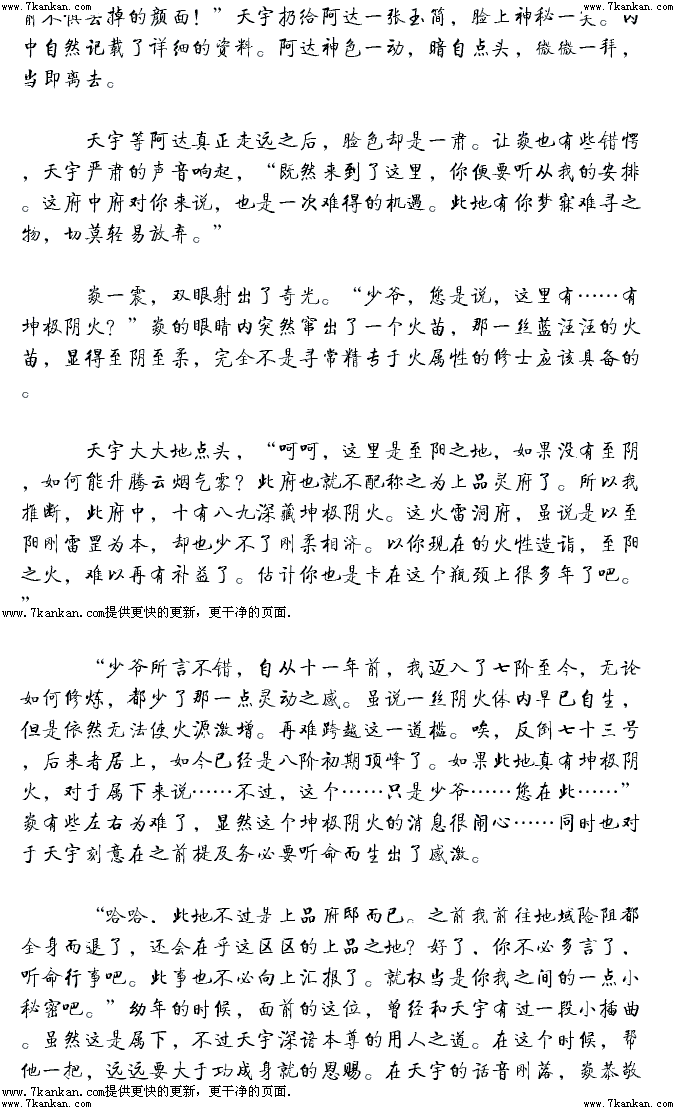 www.7kankan.com www.7kankan.com
掉的颜面！”天宇扔给阿达一张玉简，脸上神秘一笑。内
中自然记载了详细的资料。阿达神色一动，暗自点头，微微一拜，
当即离去。
天宇等阿达真正走远之后，脸色却是一肃。让焱也有些错愕
，天宇严肃的声音响起，“既然来到了这里，你便要听从我的安排
。这府中府对你来说，也是一次难得的机遇。此地有你梦寐难寻之
物，切莫轻易放弃。”
焱一震，双眼射出了奇光。“少爷，您是说，这里有……有
坤极阴火？”焱的眼睛内突然窜出了一个火苗，那一丝蓝汪汪的火
苗，显得至阴至柔，完全不是寻常精专于火属性的修士应该具备的
。
天宇大大地点头，“呵呵，这里是至阳之地，如果没有至阴
，如何能升腾云烟气雾？此府也就不配称之为上品灵府了。所以我
推断，此府中，十有八九深藏坤极阴火。这火雷洞府，虽说是以至
阳刚雷罡为本，却也少不了刚柔相济。以你现在的火性造诣，至阳
之火，难以再有补益了。估计你也是卡在这个瓶颈上很多年了吧。
”
www.7kankan.com提供更快的更新，更干净的页面.
“少爷所言不错，自从十一年前，我迈入了七阶至今，无论
如何修炼，都少了那一点灵动之感。虽说一丝阴火体内早已自生，
但是依然无法使火源激增。再难跨越这一道槛。唉，反倒七十三号
，后来者居上，如今已经是八阶初期顶峰了。如果此地真有坤极阴
火，对于属下来说……不过，这个……只是少爷……您在此……”
焱有些左右为难了，显然这个坤极阴火的消息很闹心……同时也对
于天宇刻意在之前提及务必要听命而生出了感激。
“哈哈，此地不过是上品府邸而已。之前我前往地域险阻都
全身而退了，还会在乎这区区的上品之地？好了，你不必多言了，
听命行事吧。此事也不必向上汇报了。就权当是你我之间的一点小
秘密吧。”幼年的时候，面前的这位，曾经和天宇有过一段小插曲
。虽然这是属下，不过天宇深谙本尊的用人之道。在这个时候，帮
他一把，远远要大于功成身就的恩赐。在天宇的话音刚落，焱恭敬
www.7kankan.com提供更快的更新，更干净的页面.
www.7kankan.com www.7kankan.com